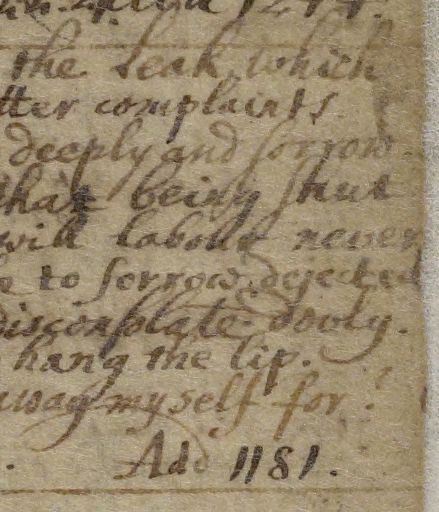 the leak, which
tter complaints.
deeply and sorrow-
that being shut
will labour never
to sorrow, dejected
disconsolate. dowly.
hang the lip.
away my self for
Add 1181.